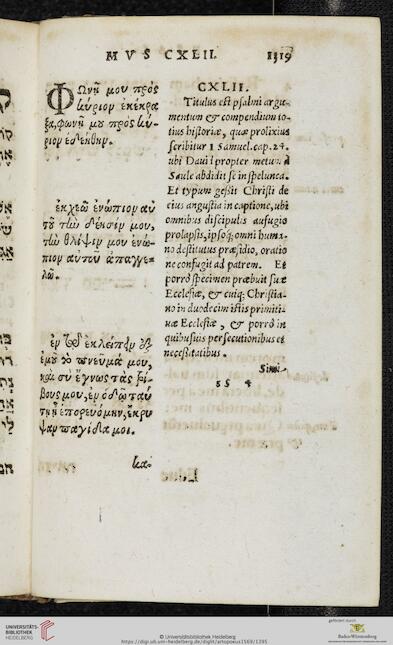 MVS CXLII. 1319
ΦΩνῇ μου πρὸς
κύριον ἐκέκρα
ξα, φωνῇ μου πρὸς κύ-
ριον ἐδεήθην.
ἐκχεῶ ἐνώπιον αὐ
τοῦ τὴν δέησίν μου,
τὴν θλίψιν μου ἐνώ-
πιον αὐτοῦ ἀπαγγε-
λῶ.
ἐν τῷ ἐκλείπειν ἐξ
ἐμοῦ τὸ πνεῦμά μου,
καὶ σὺ ἔγνως τὰς τρί-
βους μου, ἐν ὁδῷ ταύ
τῃ ᾗ ἐπορευόμην, ἔκρυ
ψαν παγίδα μοι.
κα-
CXLII.
Titulus est psalmi argu-
mentum & compendium to-
tius historiæ, quæ prolixius
scribitur 1 Samuel. cap. 24.
ubi David propter metum à
Saule abdidit se in spelunca.
Et typum gessit Christi de
eius angustia in captione, ubi
omnibus discipulis aufugio
prolapsis, ipsoq; omni huma-
no destitutus præsidio, oratio
ne confugit ad patrem. Et
porrò specimen præbuit suæ
Ecclesiæ, & cuiq; Christia-
no in duodecim istis primiti-
uæ Ecclesiæ, & porrò in
quibusuis persecutionibus et
necessitatibus.
Simi-
s s 4
UNIVERSITÄTS-
BIBLIOTHEK
HEIDELBERG
© Universitätsbibliothek Heidelberg
https://digi.ub.uni-heidelberg.de/diglit/artopoeus1569/1395
gefördert durch
Baden-Württemberg